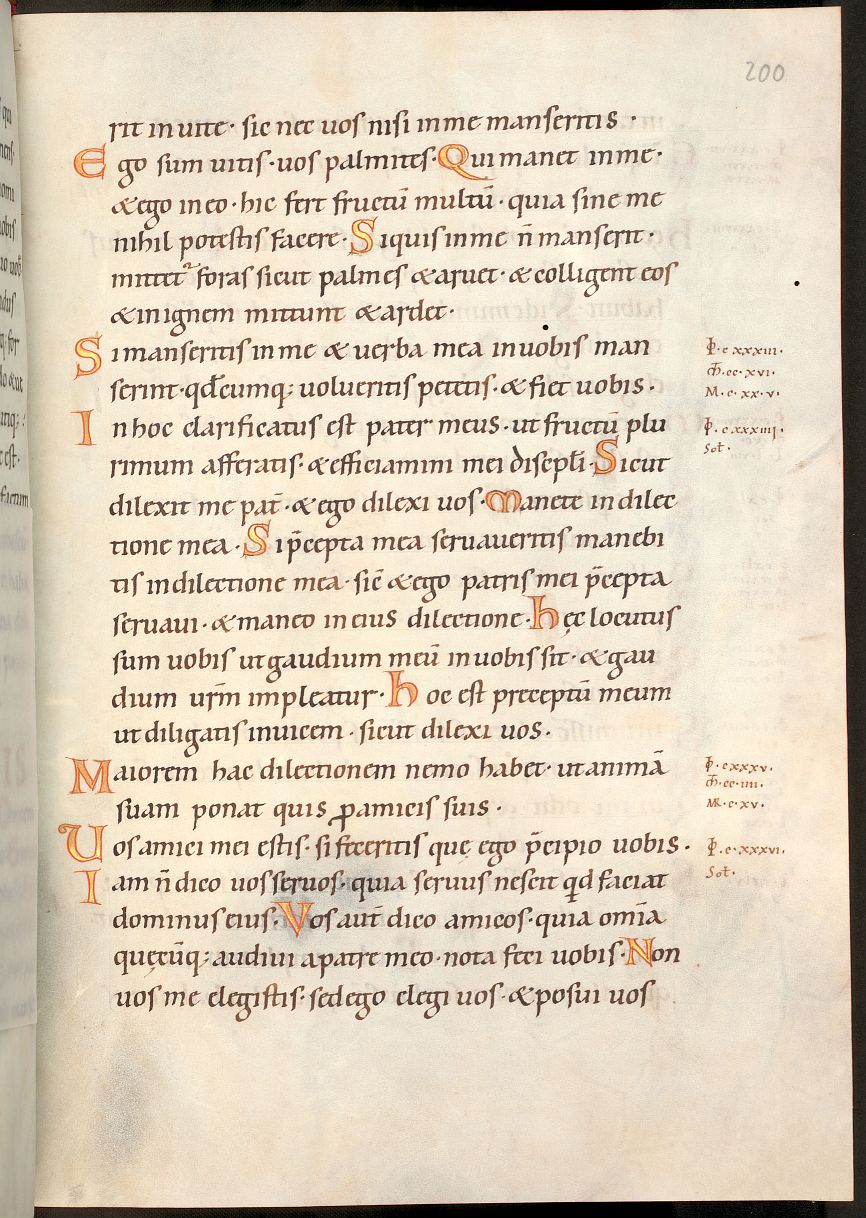 200
rit in uite· sic nec uos nisi in me manseritis ·
Ego sum uitis· uos palmites· Qui manet in me·
& ego in eo· hic fert fructū multū· quia sine me
nihil potestis facere· Siquis in me n̄ manserit·
mittet᷑ foras sicut palmes & aruet· & colligent eos
& in ignem mittunt & ardet·
Si manseritis in me & uerba mea in uobis man
serint· qđcumq; uolueritis petetis· & fiet uobis·
In hoc clarificatus est pater meus· ut fructū plu
rimum afferatis· & efficiamini mei discipl̄i· Sicut
dilexit me pat̄· & ego dilexi uos· Manete in dilec
tione mea· Si p̄cepta mea seruaueritis manebi
tis in dilectione mea· sic̄ & ego patris mei p̄cepta
seruaui· & maneo in eius dilectione· hęc locutus
sum uobis ut gaudium meū in uobis sit· & gau
dium ur̄m impleatur· hoc est preceptū meum
ut diligatis inuicem· sicut dilexi uos·
Maiorem hac dilectionem nemo habet· ut animā
suam ponat quis ꝓ amicis suis·
Uos amici mei estis· si feceritis que ego p̄cipio uobis·
Iam n̄ dico uos seruos· quia seruus nescit qd̄ faciat
dominus eius· Vos aut̄ dico amicos· quia om̄ia
quęcūq; audiui a patre meo· nota feci uobis· Non
uos me elegistis· sed ego elegi uos· & posui uos
·c xxxiii·
·cc·xvi·
M·c·xx·v·
·c xxxiiij·
Sol̄·
·cxxxv·
·cc·iiii·
·c·xv·
·c·xxxvi·
Sol̄·